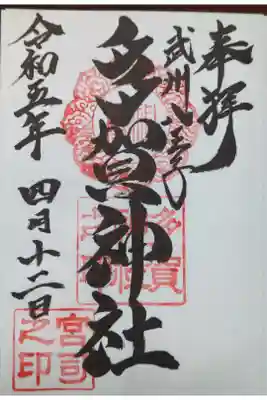 奉拝
武州八王子
多賀神社
令和五年
四月十二日
多賀
宮司
之印